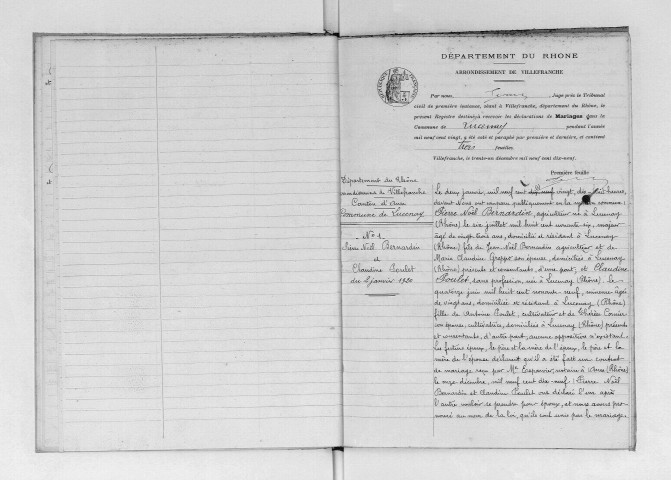 DÉPARTEMENT DU RHONE
ARRONDISSEMENT DE VILLEFRANCHE
Par nous, Juge près le Tribunal
civil de première instance, séant à Villefranche, département du Rhône, le
présent Registre destiné à recevoir les déclarations de Mariages dans la
Commune de Lucenay pendant l'année
mil neuf cent vingt, a été coté et paraphé par première et dernière, et contient
trois feuillets.
Villefranche, le trente-un décembre mil neuf cent dix-neuf.
Première feuille
Département du Rhône
Arrondissement de Villefranche
Canton d'Anse
Commune de Lucenay
N° 1
Pierre Noël Bernardin
et
Claudine Poulet
du 2 janvier 1920
Le deux janvier, mil neuf cent vingt, dix-huit heures,
devant Nous ont comparu publiquement en la maison commune :
Pierre Noël Bernardin, agriculteur, né à Lucenay
(Rhône) le six juillet mil huit cent quatre-vingt six, majeur
âgé de trente trois ans, domicilié et résidant à Lucenay,
(Rhône) fils de Jean Noël Bernardin agriculteur et de
Marie Claudine son épouse, domiciliés à Lucenay
(Rhône) présents et consentants, d'une part; et Claudine
Poulet, sans profession, née à Lucenay (Rhône), le
quatorze juin mil huit cent nonante-neuf, mineure âgée
de vingt ans, domiciliée et résidant à Lucenay (Rhône)
fille de Antoine Poulet, cultivateur et de Thérèse
son épouse, cultivatrice, domiciliés à Lucenay (Rhône) présents
et consentants, d'autre part, aucune opposition n'existant.
Les futurs époux, le père et la mère de l'époux, le père et la
mère de l'épouse déclarent qu'il a été fait un contrat
de mariage reçu par Me notaire à Anse (Rhône)
le onze décembre, mil neuf cent dix-neuf : Pierre Noël
Bernardin et Claudine Poulet ont déclaré l'un après
l'autre vouloir se prendre pour époux, et nous avons pro-
noncé au nom de la loi, qu'ils sont unis par le mariage.